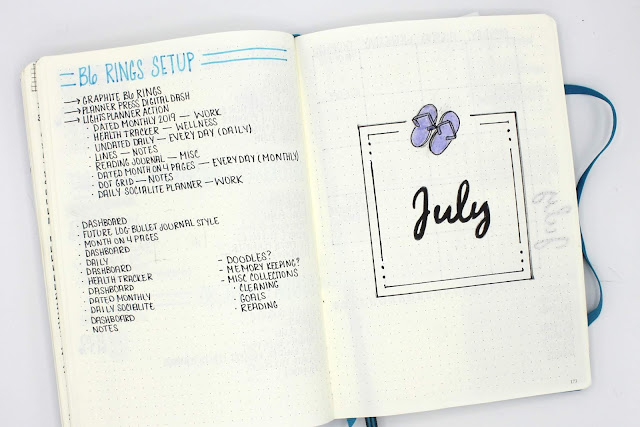 B6 RINGS SETUP
→ GRAPHITE B6 RINGS
→ PLANNER PRESS DIGITAL DASH
→ LIGHTS PLANNER ACTION
· DATED MONTHLY 2019 — WORK
· HEALTH TRACKER — WELLNESS
· UNDATED DAILY — EVERY DAY (DAILY)
· LINES — NOTES
· READING JOURNAL — MISC
· DATED MONTH ON 4 PAGES — EVERYDAY (MONTHLY)
· DOT GRID — NOTES
· DAILY SOCIALITE PLANNER — WORK
· DASHBOARD
· FUTURE LOG-BULLET JOURNAL STYLE
· MONTH ON 4 PAGES
· DASHBOARD
· DAILY
· DASHBOARD
· HEALTH TRACKER
· DASHBOARD
· DATED MONTHLY
· DAILY SOCIALITE
· DASHBOARD
· NOTES
- DOODLES?
- MEMORY KEEPING?
- MISC COLLECTIONS
· CLEANING
· GOALS
· READING
July